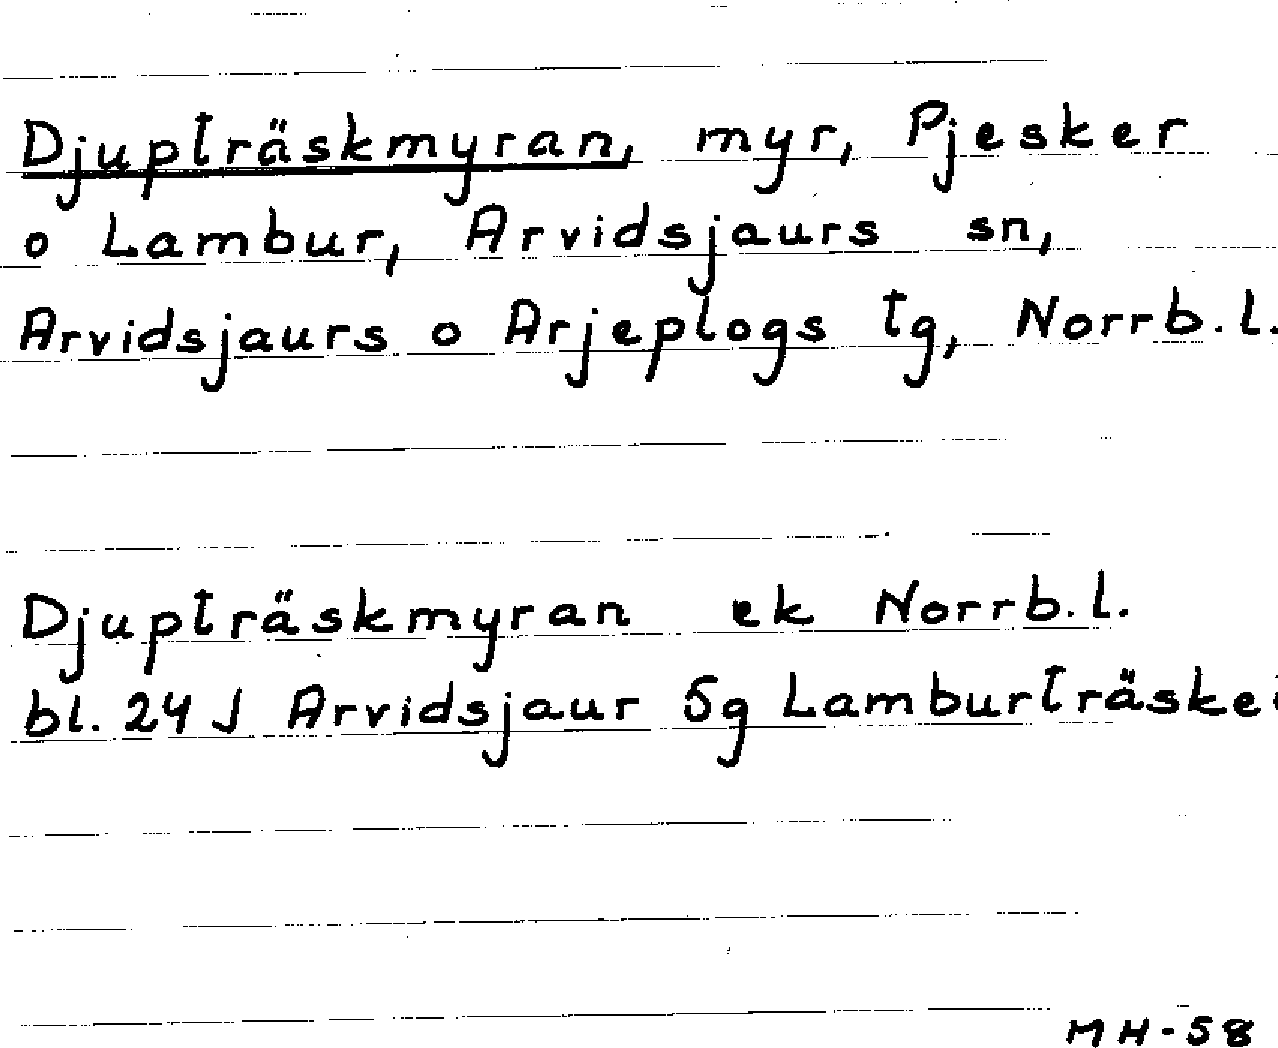 Djupträskmyran, myr, Pjesker
o Lambur, Arvidsjaurs sn,
Arvidsjaurs o Arjeplogs tg, Norrb.l.
Djupträskmyran ek Norrb.l.
bl. 24 J Arvidsjaur 5g Lamburträsket
MH-58